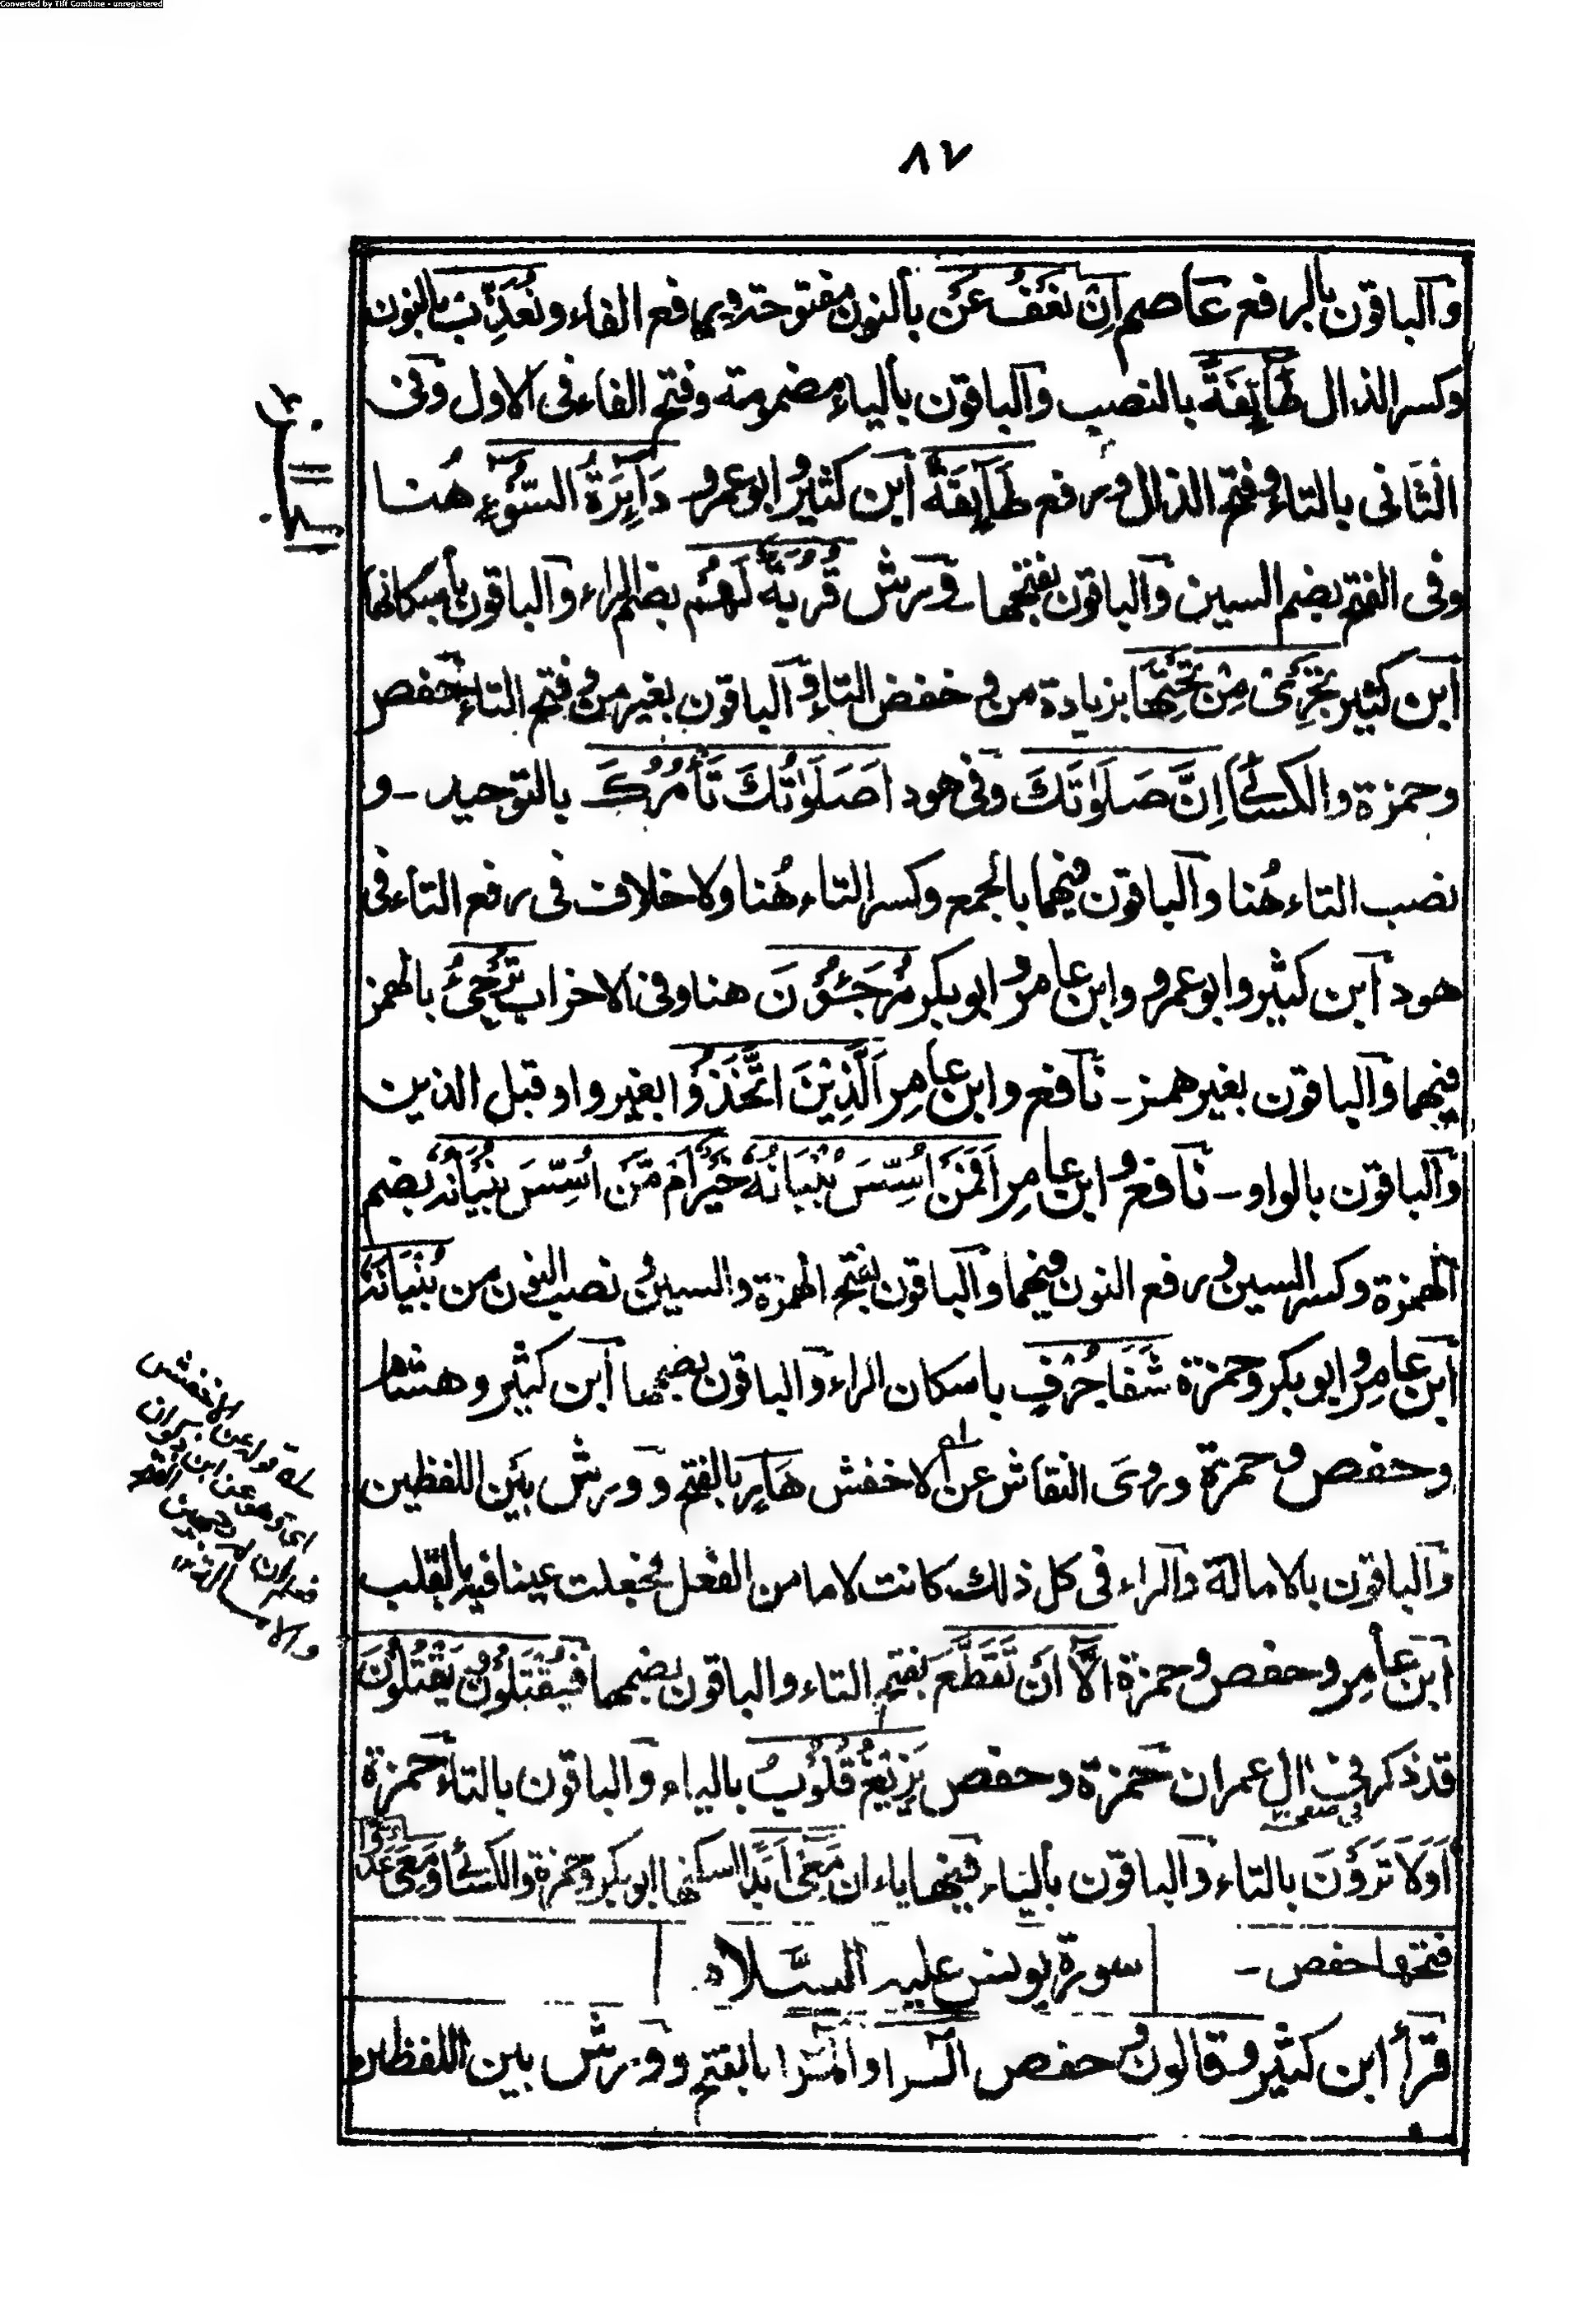 Converted by Tiff Combine - unregistered
٨٧
والباقون بالرفع عاصم اِنْ نَعْفُ عَنْ بالنون مفتوحة ورفع الفاء ونُعَذِّبْ بالنون
وكسر الذال طَآئِفَةً بالنصب والباقون بالياء مضمومة وفتح الفاء فى الاول وفى
الثانى بالتاء وفتح الذال ورفع طَآئِفَةٌ ابن كثير وابو عمرو دَآئِرَةُ السُّوْءِ هُنا
وفى الفتح بضم السين والباقون بفتحها ـ ورش قُرُبَةٌ لَهُمْ بضم الراء والباقون باسكانها
ابن كثير تَجْرِىْ مِنْ تَحْتِهَا بزيادة من وخفض التاء والباقون بغير من وفتح التاء حفص
وحمزة والكسائى اِنَّ صَلٰوتَكَ وفى هود اَصَلٰوتُكَ تَأْمُرُكَ بالتوحيد ـ و
نصب التاء هُنا والباقون فيهما بالجمع وكسر التاء هُنا ولا خلاف فى رفع التاء فى
هود ابن كثير وابو عمرو وابن عامر وابو بكر مُرْجَئُوْنَ هنا وفى الاحزاب تُرْجِئُ بالهمز
فيهما والباقون بغير همز ـ نافع وابن عامِر اَلَّذِيْنَ اتَّخَذُوْا بغير واو قبل الذين
والباقون بالواو ـ نافع وابن عامِر اَفَمَنْ اُسِّسَ بُنْيَانُهٗ خَيْرٌ اَمْ مَّنْ اُسِّسَ بُنْيَانُهٗ بضم
الهمزة وكسر السين ورفع النون فيهما والباقون بفتح الهمزة والسين ونصب النون من بُنْيَانَهٗ
ابن عامِر وابو بكر وحمزة شَفَا جُرْفٍ باسكان الراء والباقون بضمها ابن كثير وهشام
وحفص وحمزة وروى النقاش عن الاخفش هَارٍ بالفتح وورش بَيْن اللفظين
والباقون بالامالة والراء فى كل ذلك كانت لاما من الفعل فجعلت عينا فيه بالقلب
ابن عامِر وحفص وحمزة اِلَّا اَنْ تَقَطَّعَ بفتح التاء والباقون بضمها فَيُقْتَلُوْنَ وَيَقْتُلُوْنَ
قد ذكر فى اٰل عمران حمزة وحفص يَزِيْغُ قُلُوْبُ بالياء والباقون بالتاء حمزة
اَوَلَا تَرَوْنَ بالتاء والباقون بالياء فيها ياءان مَعِىَ اَبَدًا اسكنها ابو بكر وحمزة والكسائى ومَعِىَ عَدُوًّا
فتحها حفص ـ
سورة يونس عليه السَّلام
قرأ ابن كثير وقالون وحفص الٓرٰ والٓمٓرٰ بالفتح وورش بين اللفظين
قوله عن الاخفش